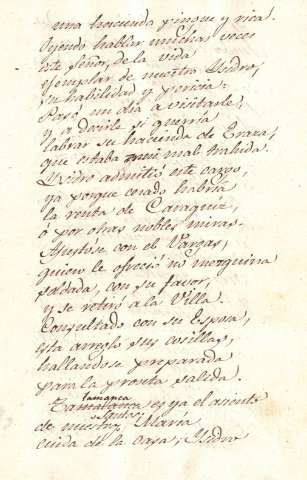 una hacienda pingue y rica.
Oyendo hablar muchas veces
este señor, de la vida
exemplar de nuestro Ysidro,
su habilidad y pericia:
Pasó un dia a visitarle,
y a decirle si queria
labrar su hacienda de Eraza,
que estaba mui mal trahida.
Ysidro admitió este cargo,
ya porque cesado habria
la renta de Caraquiz,
ó por otras nobles miras.
Ajustóse con el Vargas,
quien le ofreció no mezquina
soldada, con su favor,
y se retiró a la Villa.
Consultado con su Esposa,
esta arregló sus cosillas,
hallandose preparada
para la pronta salida.
lamanca
es ya el asiento
de nuestros Santos; María
cuida de la casa; Ysidro